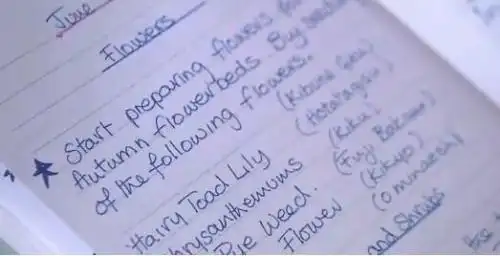 June
Flowers
Start preparing flowers for
Autumn flowerbeds. Buy seeds
of the following flowers.
Hairy Toad Lily (Hototogisu)
Chrysanthemums (Kiku)
Pye Weed. (Fuji Bakama)
Flower (Kikyo)
(Ominaeshi)
and Shrubs